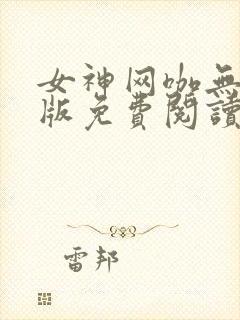 女神网咖無
版免費閱讀
雷邦